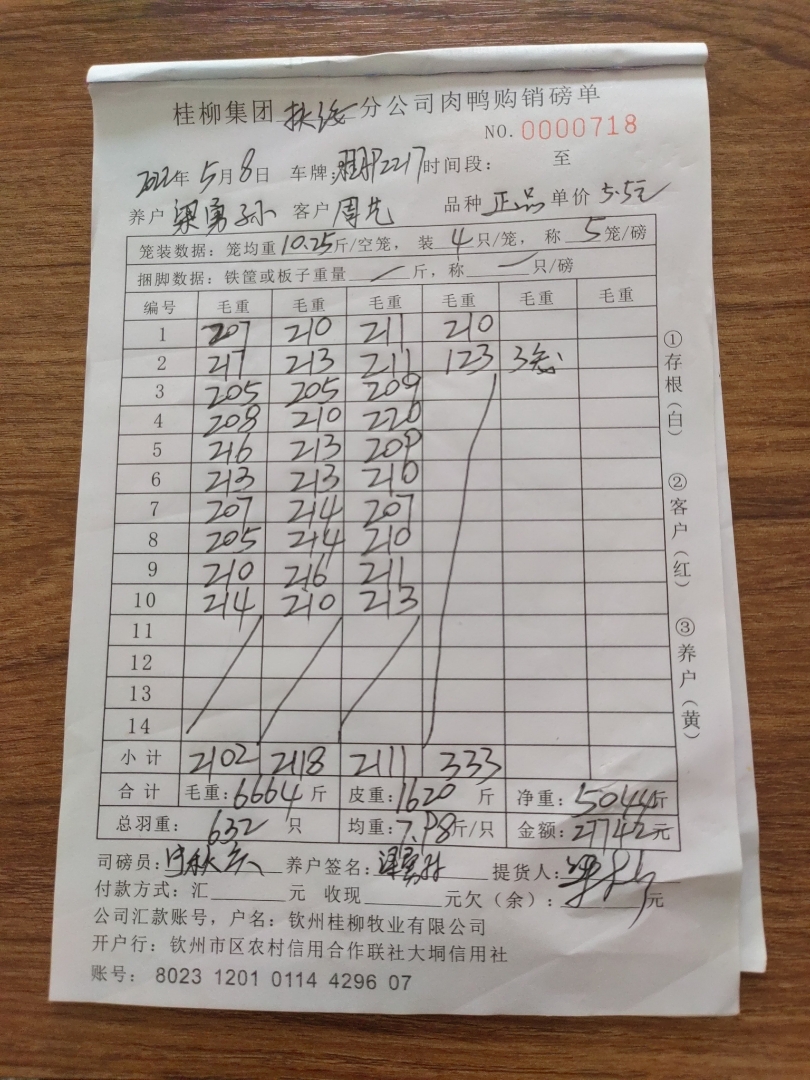 桂柳集团扶绥分公司肉鸭购销磅单
NO. 0000718
2022年5月8日 车牌: 2217 时间段: 至
养户 梁勇孙 客户 周先 品种 正品 单价 5.5元
笼装数据: 笼均重10.25斤/空笼, 装4只/笼, 称5笼/磅
捆脚数据: 铁筐或板子重量 — 斤, 称 — 只/磅
编号 毛重 毛重 毛重 毛重 毛重 毛重
1 207 210 211 210
2 217 213 211 123 3笼
3 205 205 209
4 208 210 220
5 216 213 209
6 213 213 210
7 207 214 207
8 205 214 210
9 210 216 211
10 214 210 213
11
12
13
14
小计 2102 2118 2111 333
合计 毛重: 6664斤 皮重: 1620斤 净重: 5044斤
总羽重: 632只 均重: 7.98斤/只 金额: 27742元
司磅员: 养户签名: 梁勇孙 提货人:
付款方式: 汇 元 收现 元欠(余): 元
公司汇款账号, 户名: 钦州桂柳牧业有限公司
开户行: 钦州市区农村信用合作联社大垌信用社
账号: 8023 1201 0114 4296 07
①存根(白)
②客户(红)
③养户(黄)